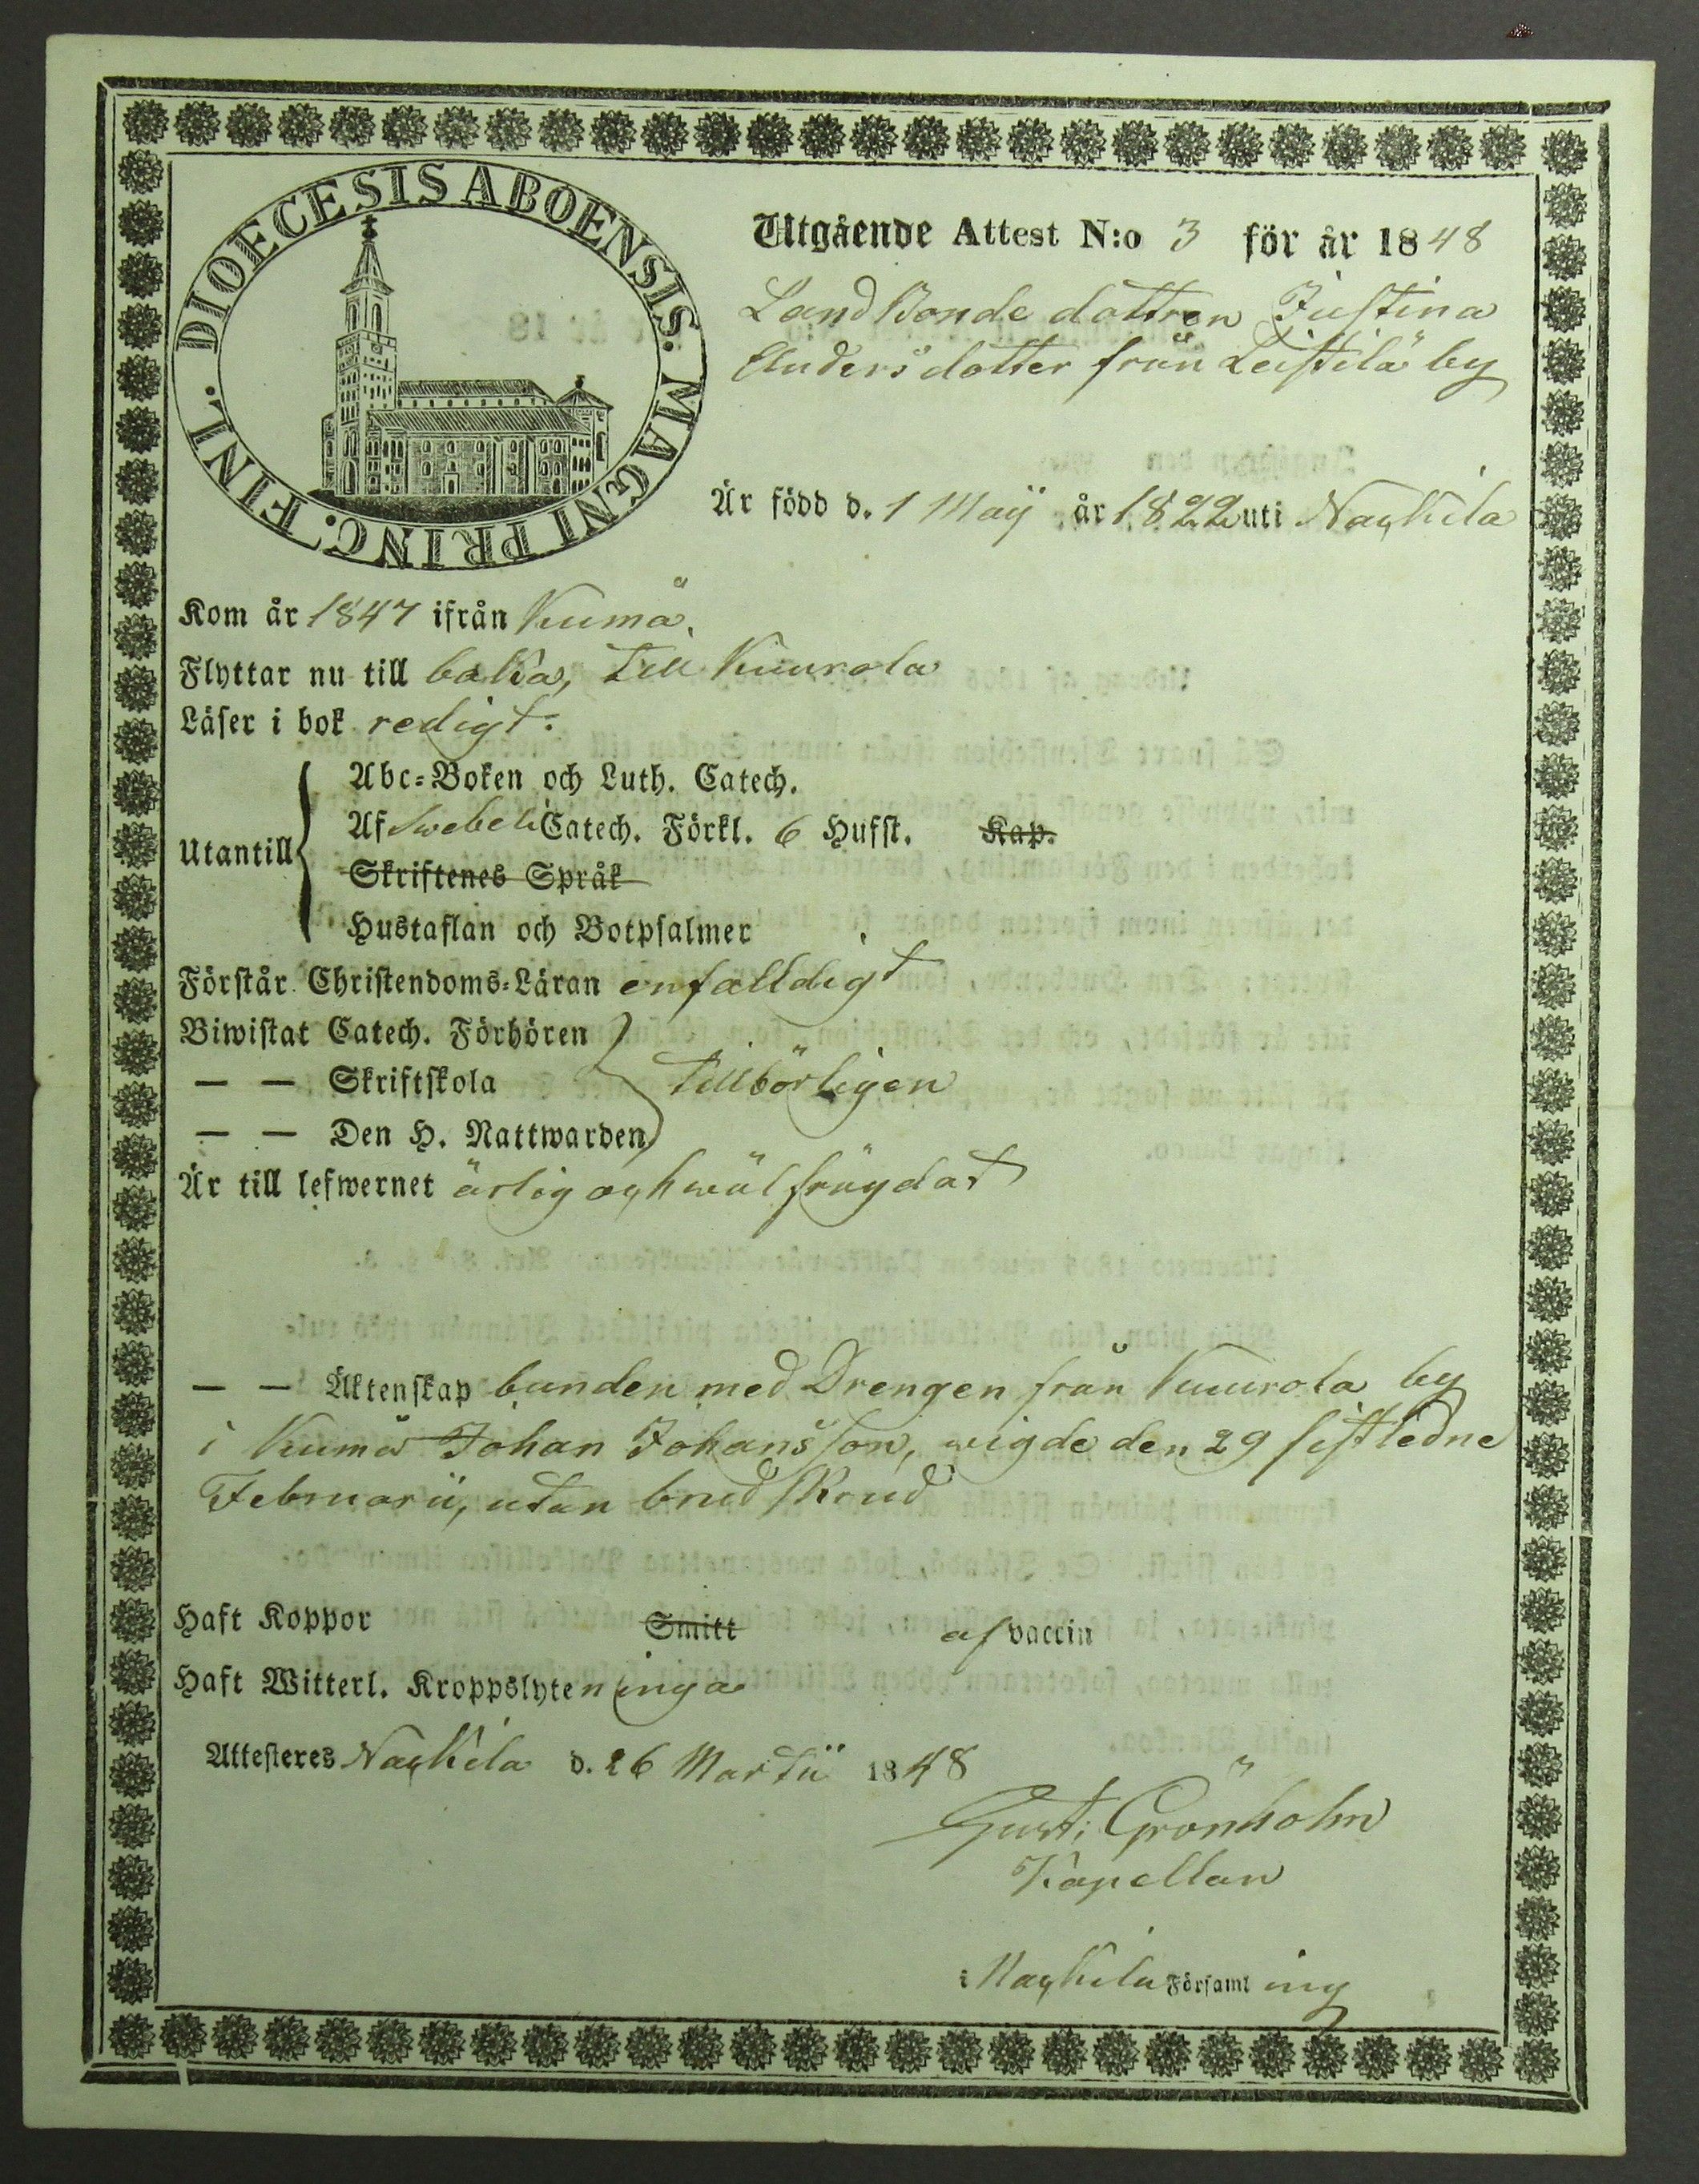 DIOECESIS ABOENSIS. MAGNI PRINC. FINL.
Utgående Attest N:o 3 för år 1848
Landbonde dottren Justina
Anders dotter från Leistilä by
Är född d. 1 Maij år 1822 uti Nackila
Kom år 1847 ifrån Kumå.
Flyttar nu till baka, till Kuurola
Läser i bok redigt.
Utantill
Abc-Boken och Luth. Catech.
Af Swebeli Catech. Förkl. 6 Hufst. Kap.
Skriftenes Språk
Hustaflan och Botpsalmer
Förstår Christendoms-Läran enfalldigt
Biwistat Catech. Förhören
— — Skriftskola tillbörligen
— — Den H. Nattwarden
Är till lefwernet ärlig och wäl frägdat
— — Äktenskap bunden med Drengen från Kuurola by
i Kumå Johan Johansson, wigde den 29 sistledne
Februarii, utan brudskrud
Haft Koppor Smitt af vaccin
Haft Witterl. Kroppslyten inga
Attesteres Nackila d. 26 Martii 1848
Gust: Grönholm
Kapellan
i Nackila Församling